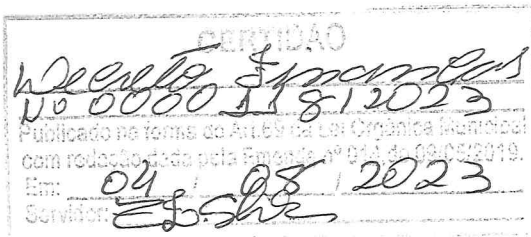 CERTIDÃO
Decreto Financeiro
Nº 0000118/2023
Publicado na forma do Art. 69 da Lei Orgânica Municipal
com redação dada pela Emenda nº 014 de 09/05/2019.
Em: 04 / 08 / 2023
Servidor: